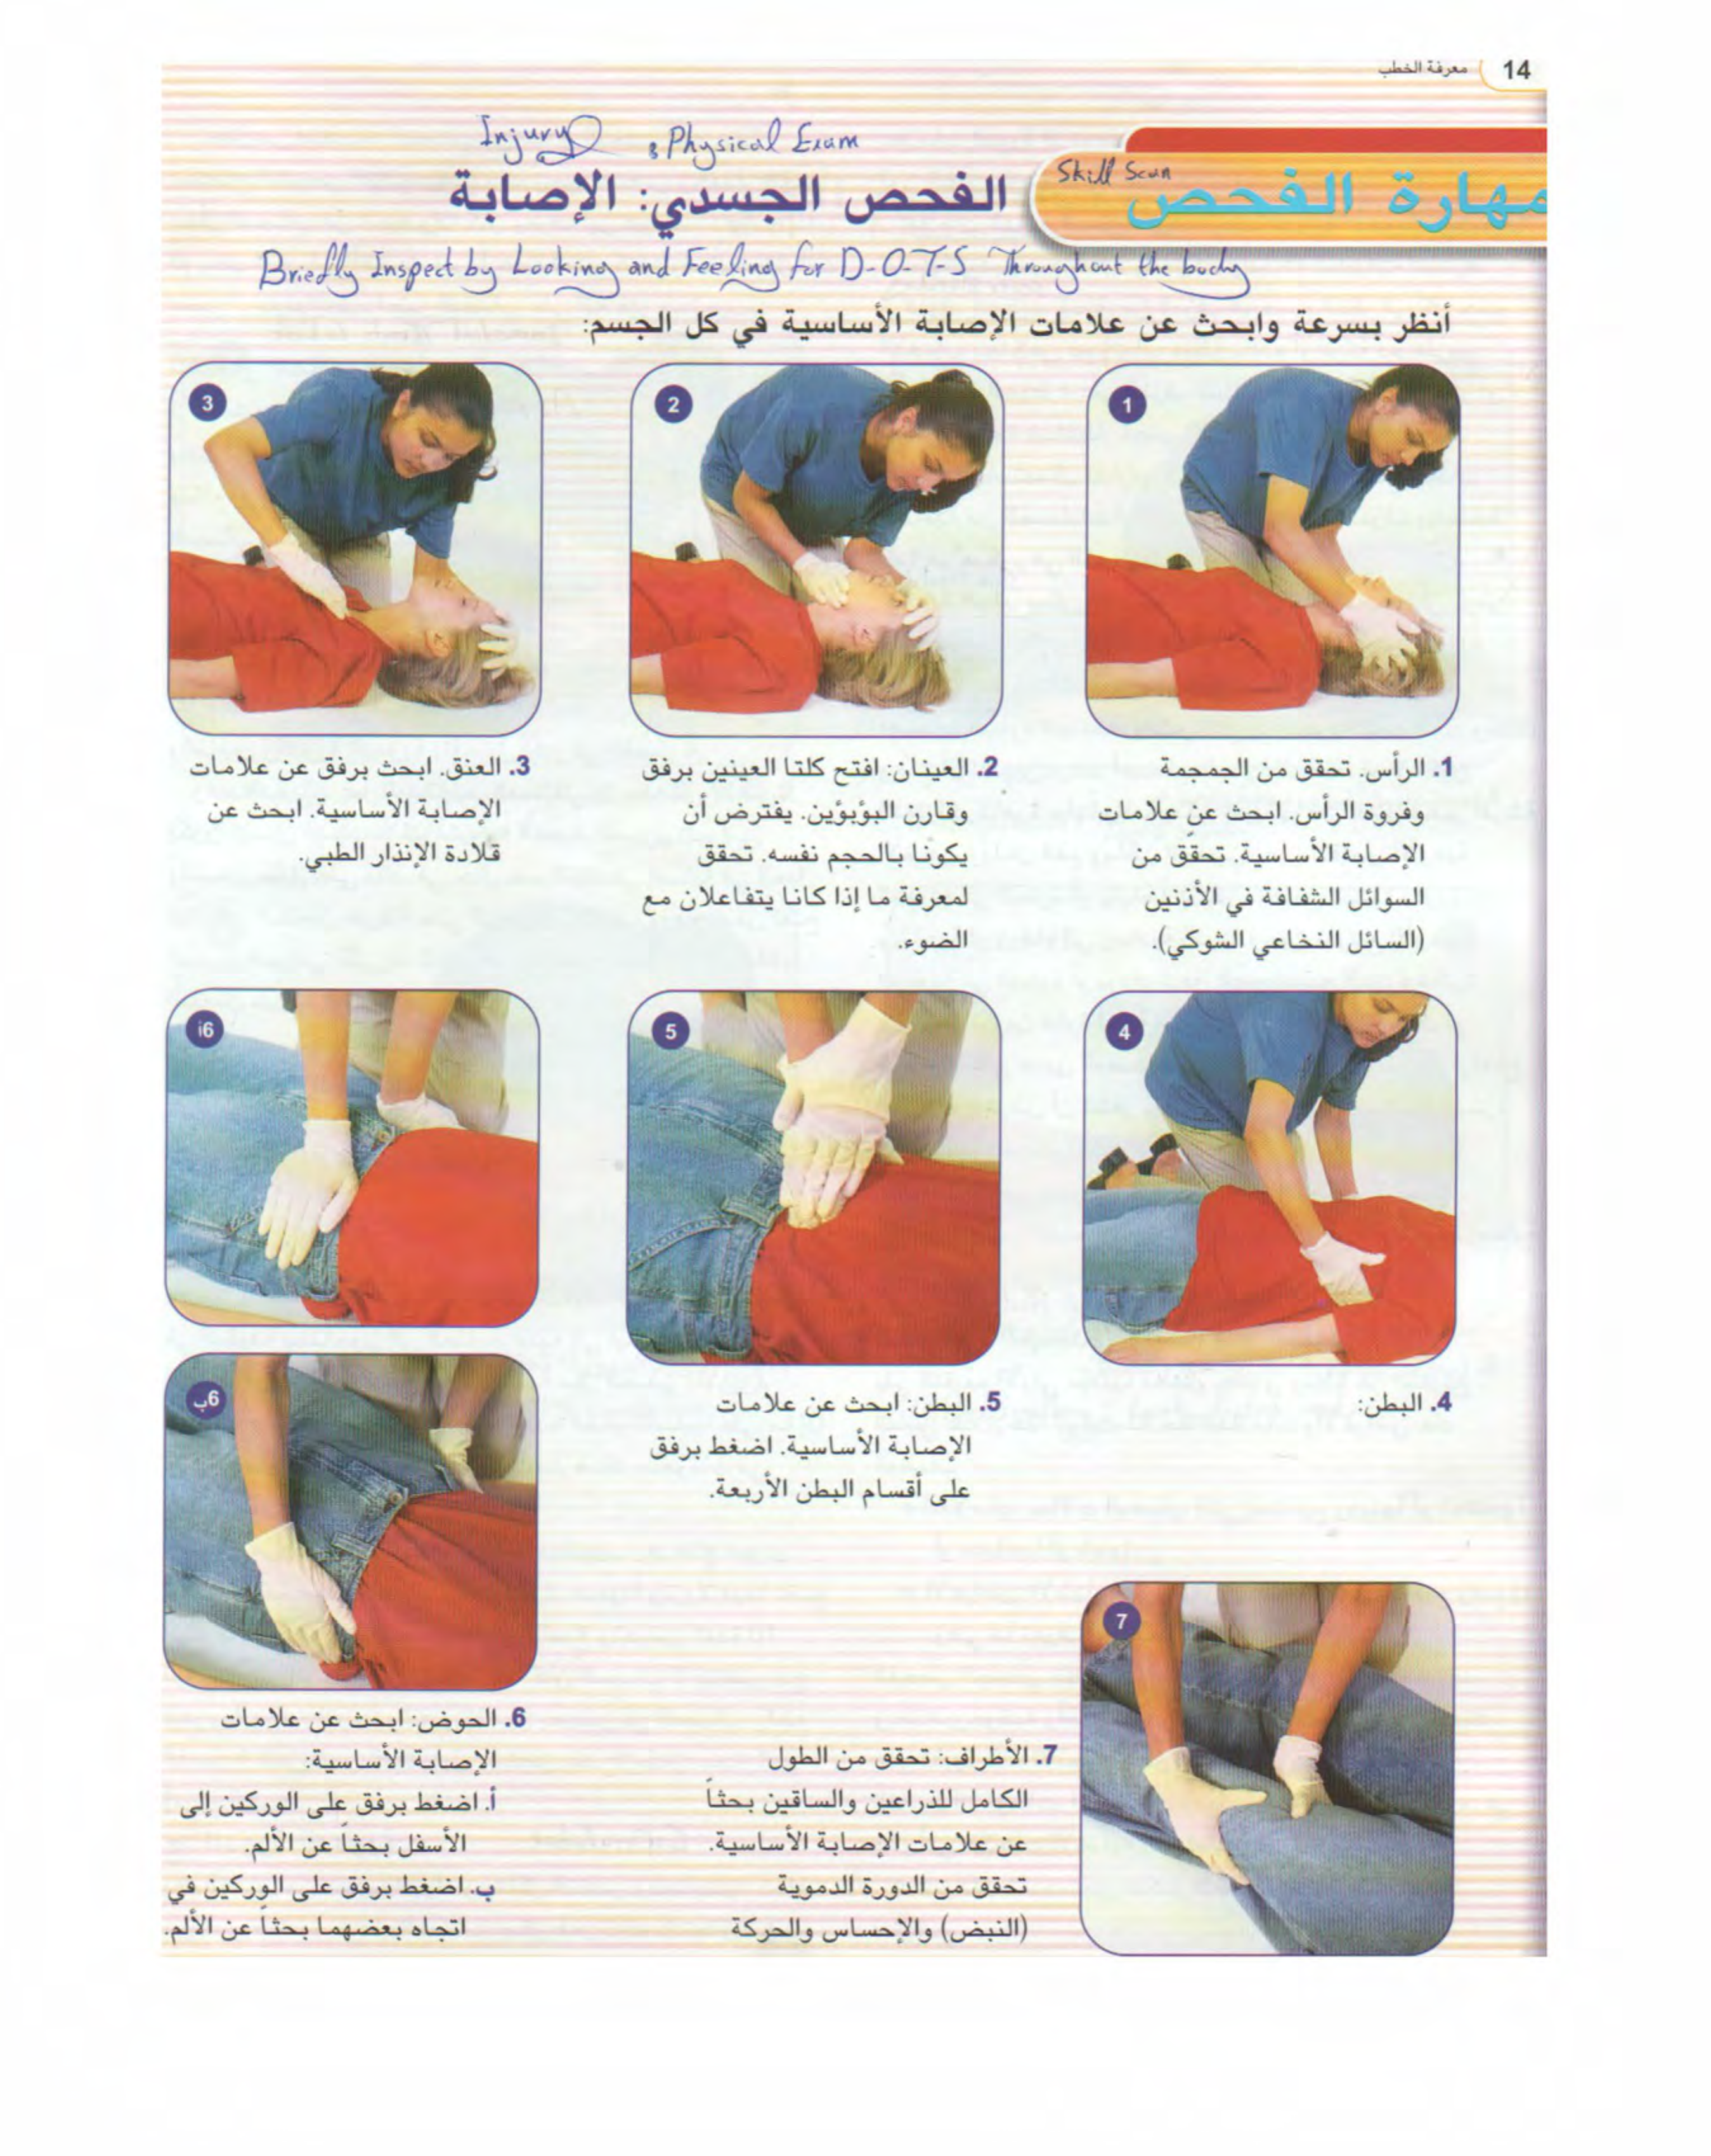 14 معرفة الخطب
Skill Scan
مهارة الفحص
Injury : Physical Exam
الفحص الجسدي: الإصابة
Briefly Inspect by Looking and Feeling for D-O-T-S Throughout the body
أنظر بسرعة وابحث عن علامات الإصابة الأساسية في كل الجسم:
1
1. الرأس. تحقق من الجمجمة
وفروة الرأس. ابحث عن علامات
الإصابة الأساسية. تحقق من
السوائل الشفافة في الأذنين
(السائل النخاعي الشوكي).
2
2. العينان: افتح كلتا العينين برفق
وقارن البؤبؤين. يفترض أن
يكونا بالحجم نفسه. تحقق
لمعرفة ما إذا كانا يتفاعلان مع
الضوء.
3
3. العنق. ابحث برفق عن علامات
الإصابة الأساسية. ابحث عن
قلادة الإنذار الطبي.
4
4. البطن:
5
5. البطن: ابحث عن علامات
الإصابة الأساسية. اضغط برفق
على أقسام البطن الأربعة.
6أ
6ب
6. الحوض: ابحث عن علامات
الإصابة الأساسية:
أ. اضغط برفق على الوركين إلى
الأسفل بحثاً عن الألم.
ب. اضغط برفق على الوركين في
اتجاه بعضهما بحثاً عن الألم.
7
7. الأطراف: تحقق من الطول
الكامل للذراعين والساقين بحثاً
عن علامات الإصابة الأساسية.
تحقق من الدورة الدموية
(النبض) والإحساس والحركة